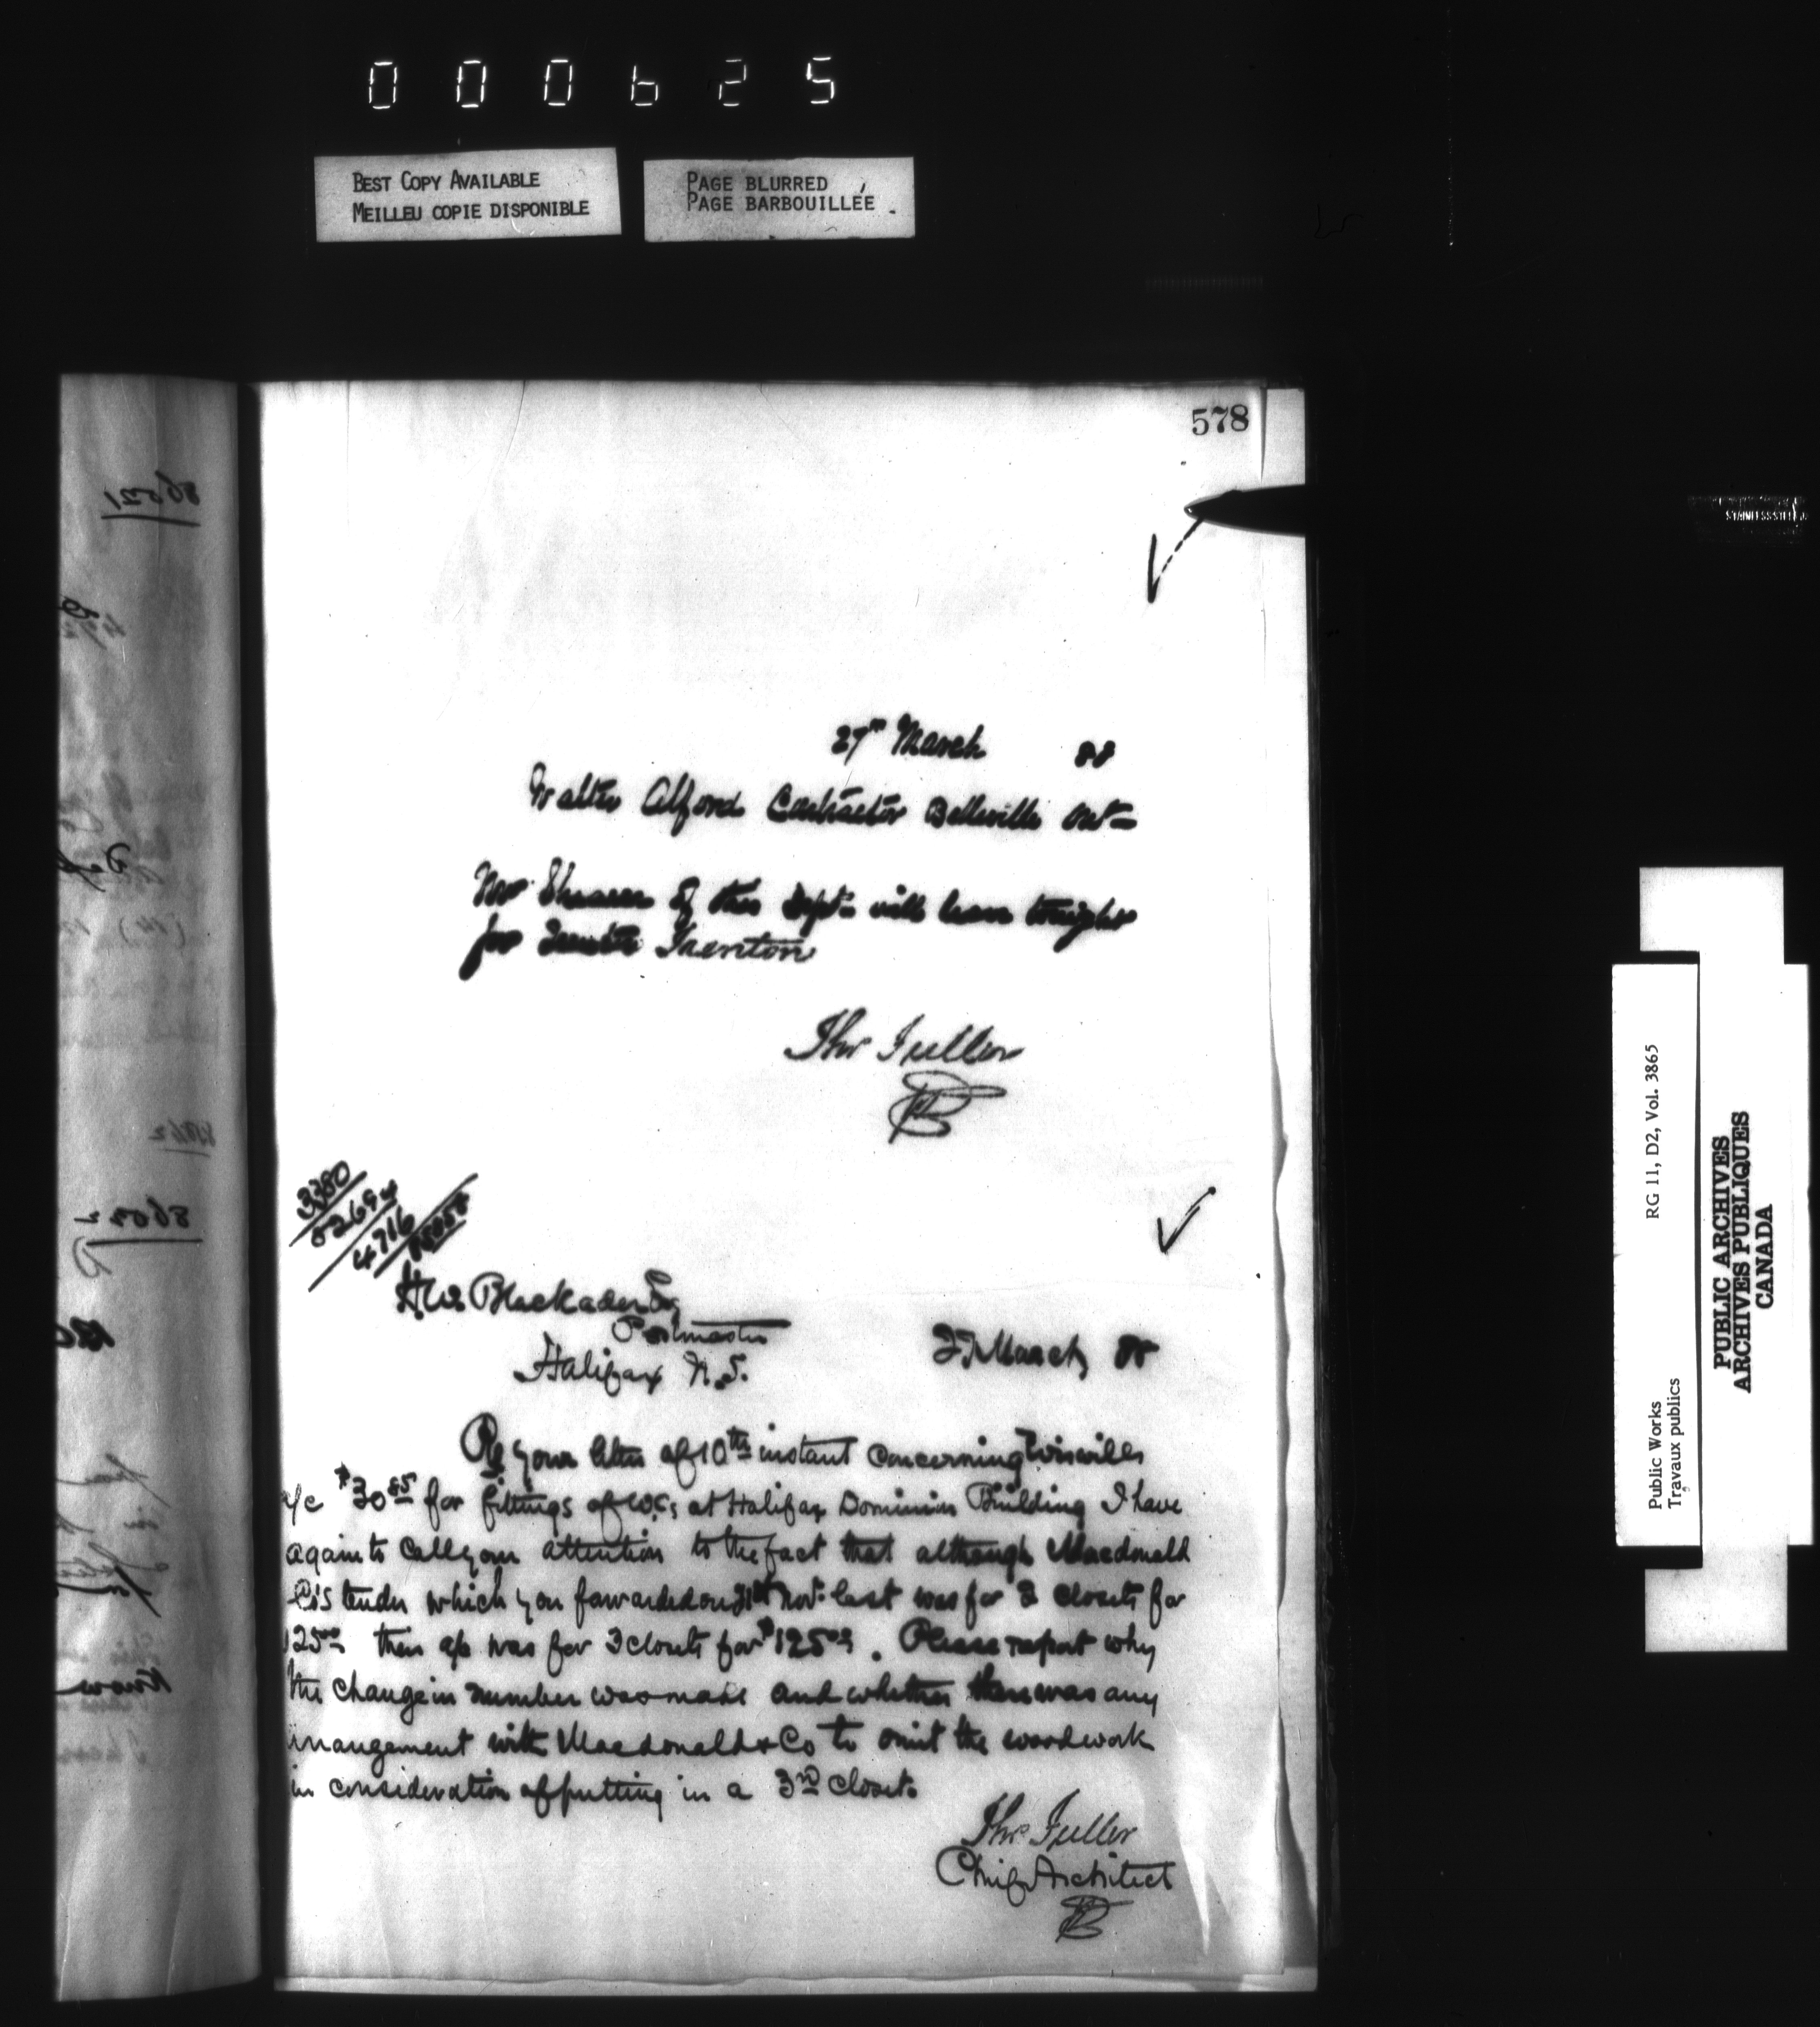 000625
BEST COPY AVAILABLE
MEILLEU COPIE DISPONIBLE
PAGE BLURRED
PAGE BARBOUILLÉE
578
STAINLESS STEEL
27th March 88
Walter Alford Contractor Belleville Ont
Mr Shearer of this Dept will leave tonight
for Trenton
Thos Fuller
3380
4716
H.W. Blackadar Esq
Postmaster
Halifax N.S.
27 March 88
Re your letter of 10th instant concerning Wiswell's
a/c $30.85 for fittings of W.C's at Halifax Dominion Building I have
again to call your attention to the fact that although Macdonald
Co's tender which you forwarded on 21st Nov. last was for 2 closets for
125.00 their a/c was for 3 closets for $125.00. Please report why
the change in number was made and whether there was any
arrangement with Macdonald & Co to omit the woodwork
in consideration of putting in a 3rd closet.
Thos Fuller
Chief Architect
Public Works
Travaux publics
RG 11, D2, Vol. 3865
PUBLIC ARCHIVES
ARCHIVES PUBLIQUES
CANADA